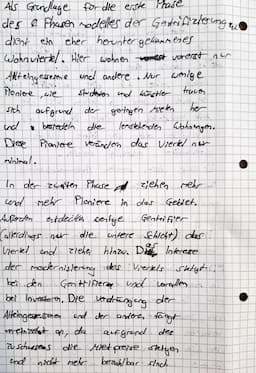 Als Grundlage für die erste Phase
des Phasenmodelles der Gentrifizierung
dient ein eher heruntergekommenes
Wohnviertel. Hier wohnen vorerst nur
Alteingesessene und andere. Nur wenige
Pioniere wie Studenten und Künstler trauen
sich aufgrund der geringen Mieten her
und besiedeln die leerstehenden Wohnungen.
Diese Pioniere verändern das Viertel nur
minimal.
In der zweiten Phase ziehen mehr
und mehr Pioniere in das Gebiet.
Außerdem entdecken einige Gentrifier
(allerdings nur die untere Schicht) das
Viertel und ziehen hinzu. Das Interesse
der Modernisierung des Viertels steigt
bei den und vorallem
bei Investoren. Die Verdrängung der
Alteingesessenen und der anderen fängt
an, da aufgrund des
Zuschusses die Mietpreise steigen
und nicht mehr bezahlbar sind.